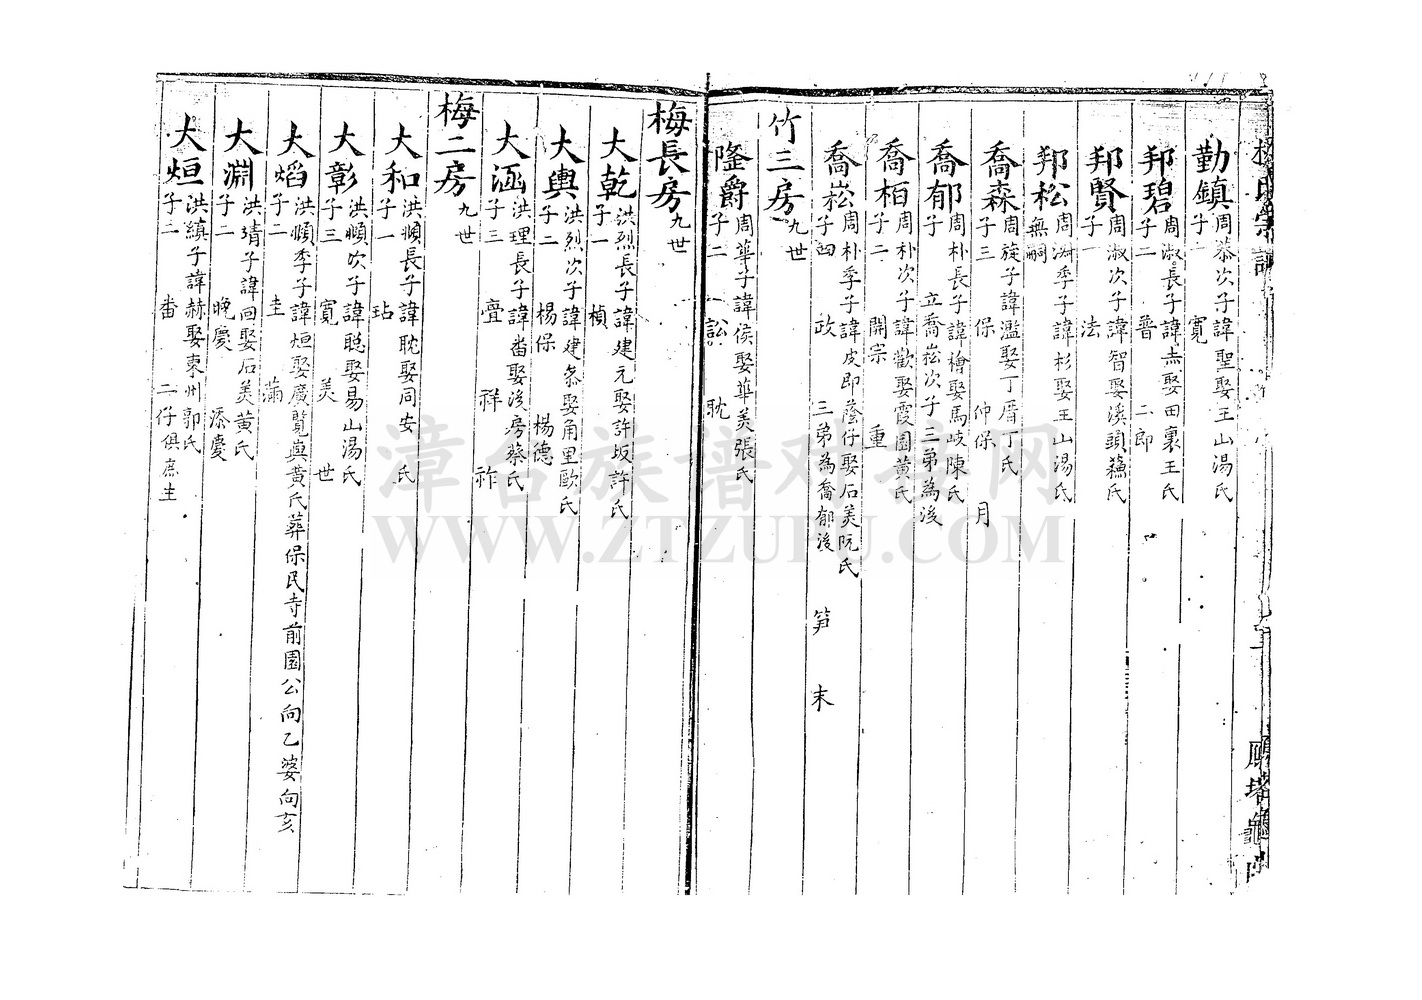 勤鎮 周恭次子諱聖娶王山湯氏
子一 寬
邦碧 周淑長子諱赤娶田裏王氏
子二 普 二郎
邦賢 周淑次子諱智娶溪頭蘓氏
子一 法
邦松 周淑季子諱杉娶王山湯氏
無嗣
喬森 周旋子諱濫娶丁厝丁氏
子三 保 仲保 月
喬郁 周朴長子諱檜娶馬岐陳氏
子 立喬崧次子三弟為後
喬栢 周朴次子諱歡娶霞園黄氏
子二 開宗 重
喬崧 周朴季子諱皮即蔭仔娶石美阮氏
子四 政 三弟為喬郁後 笋 末
竹三房 九世
隆爵 周華子諱侯娶華美張氏
子二 訟 耽
梅長房 九世
大乾 洪烈長子諱建元娶許坂許氏
子一 楨
大輿 洪烈次子諱建忝娶角里歐氏
子二 楊保 楊德
大涵 洪理長子諱畨娶後房蔡氏
子三 亹 祥 祚
梅二房 九世
大和 洪順長子諱耽娶同安 氏
子一 玷
大彰 洪順次子諱聪娶易山湯氏
子三 寬 美 世
大熖 洪順季子諱烜娶廣覽與黄氏葬保民寺前園公向乙婆向亥
子二 圭 滿
大淵 洪靖子諱回娶石美黄氏
子二 晚慶 添慶
大烜 洪縝子諱赫娶東州郭氏
子二 畨 二仔俱庶生
漳台族谱对接网
WWW.ZTZUPU.COM